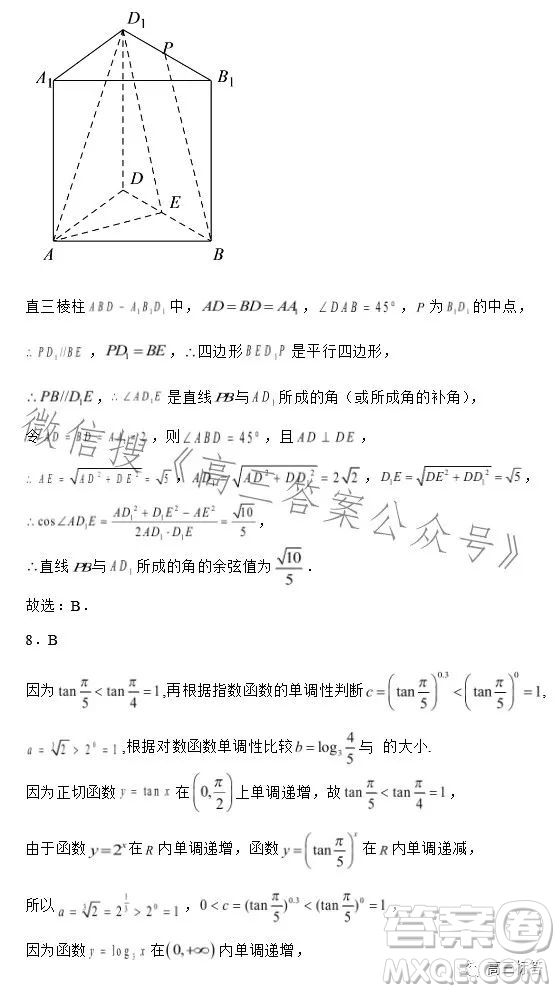 D₁
P
A₁
B₁
D
E
A
B
直三棱柱 ABD - A₁B₁D₁ 中，AD=BD=AA₁，∠DAB = 45°，P 为 B₁D₁ 的中点，
∴ PD₁//BE，PD₁=BE，∴四边形 BED₁P 是平行四边形，
∴PB//D₁E，∴ ∠AD₁E 是直线PB与 AD₁ 所成的角（或所成角的补角），
令 AD = BD = AA₁ = 2，则∠ABD=45°，且 AD⊥DE，
∴ AE=√(AD²+DE²)=√5，AD₁=√(AD²+DD₁²)=2√2，D₁E=√(DE²+DD₁²)=√5，
∴cos∠AD₁E=(AD₁²+D₁E²-AE²)/(2AD₁·D₁E)=√10/5，
∴直线 PB与 AD₁ 所成的角的余弦值为 √10/5．
故选：B．
8．B
因为 tan π/5 < tan π/4 =1,再根据指数函数的单调性判断 c=(tan π/5)^0.3 <(tan π/5)^0 =1,
a=∛2>2⁰=1,根据对数函数单调性比较 b=log₃ 4/5 与 的大小.
因为正切函数 y=tan x 在 (0,π/2) 上单调递增，故 tan π/5 < tan π/4 =1，
由于函数 y=2ˣ 在 R 内单调递增，函数 y=(tan π/5)ˣ 在 R 内单调递减，
所以 a=∛2=2^(1/3)>2⁰=1，0<c=(tan π/5)^0.3<(tan π/5)^0=1，
因为函数 y=log₃x 在(0,+∞)内单调递增，
微信搜《高三答案公众号》
答案圈
高三标答